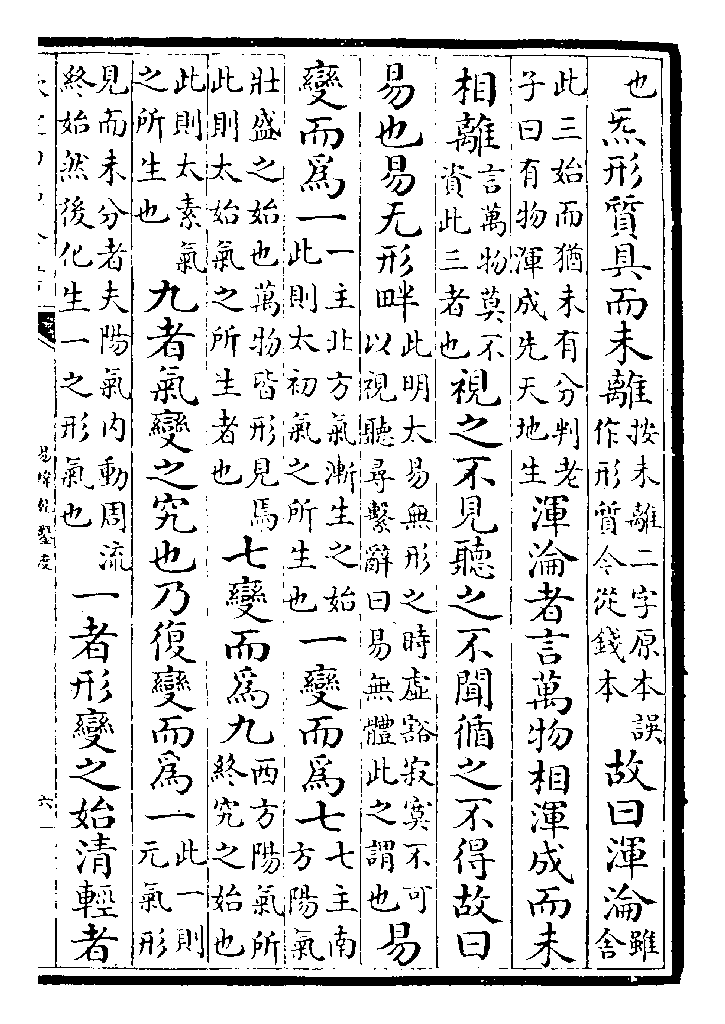 也炁形質具而未離按未離二字原本誤作形質今從錢本故曰渾淪雖含
此三始而猶未有分判老子曰有物渾成先天地生渾淪者言萬物相渾成而未
相離言萬物莫不資此三者也視之不見聽之不聞循之不得故曰
易也易无形畔此明太易無形之時虛豁寂寞不可以視聽尋繫辭曰易無體此之謂也易
變而爲一一主北方氣漸生之始此則太初氣之所生也一變而爲七七主南方陽氣
壯盛之始也萬物皆形見焉此則太始氣之所生者也七變而爲九西方陽氣所終究之始也
此則太素氣之所生也九者氣變之究也乃復變而爲一此一則元氣形
見而未分者夫陽氣內動周流終始然後化生一之形氣也一者形變之始清輕者
易緯乾鑿度
六